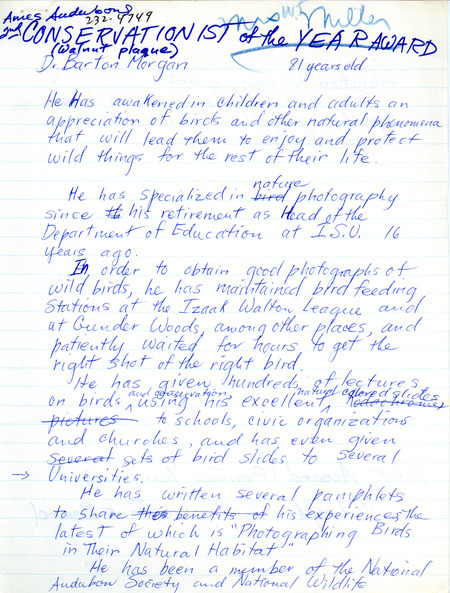 Ames Audubons
232-4749
Mrs W. E. Miller
2nd CONSERVATIONIST of the YEAR AWARD
(walnut plaque)
Dr. Barton Morgan 81 years old
He Has awakened in children and adults an
appreciation of birds and other natural phenomena
that will lead them to enjoy and protect
wild things for the rest of their life.
nature
He has specialized in bird photography
since th his retirement as Head of the
Department of Education at I.S.U. 16
years ago.
In order to obtain good photographs of
wild birds, he has maintained bird feeding
Stations at the Izaak Walton League and
at Gunder Woods, among other places, and
patiently waited for hours to get the
right shot of the right bird.
He has given hundreds of lectures
and conservation natural colored slides
on birds using his excellent Kodachromes
pictures to schools, civic organizations
and churches, and has even given
several sets of bird slides to several
→ Universities.
He has written several pamphlets
to share the benefits of his experiences, the
latest of which is "Photographing Birds
in Their Natural Habitat"
He has been a member of the National
Audubon Society and National Wildlife